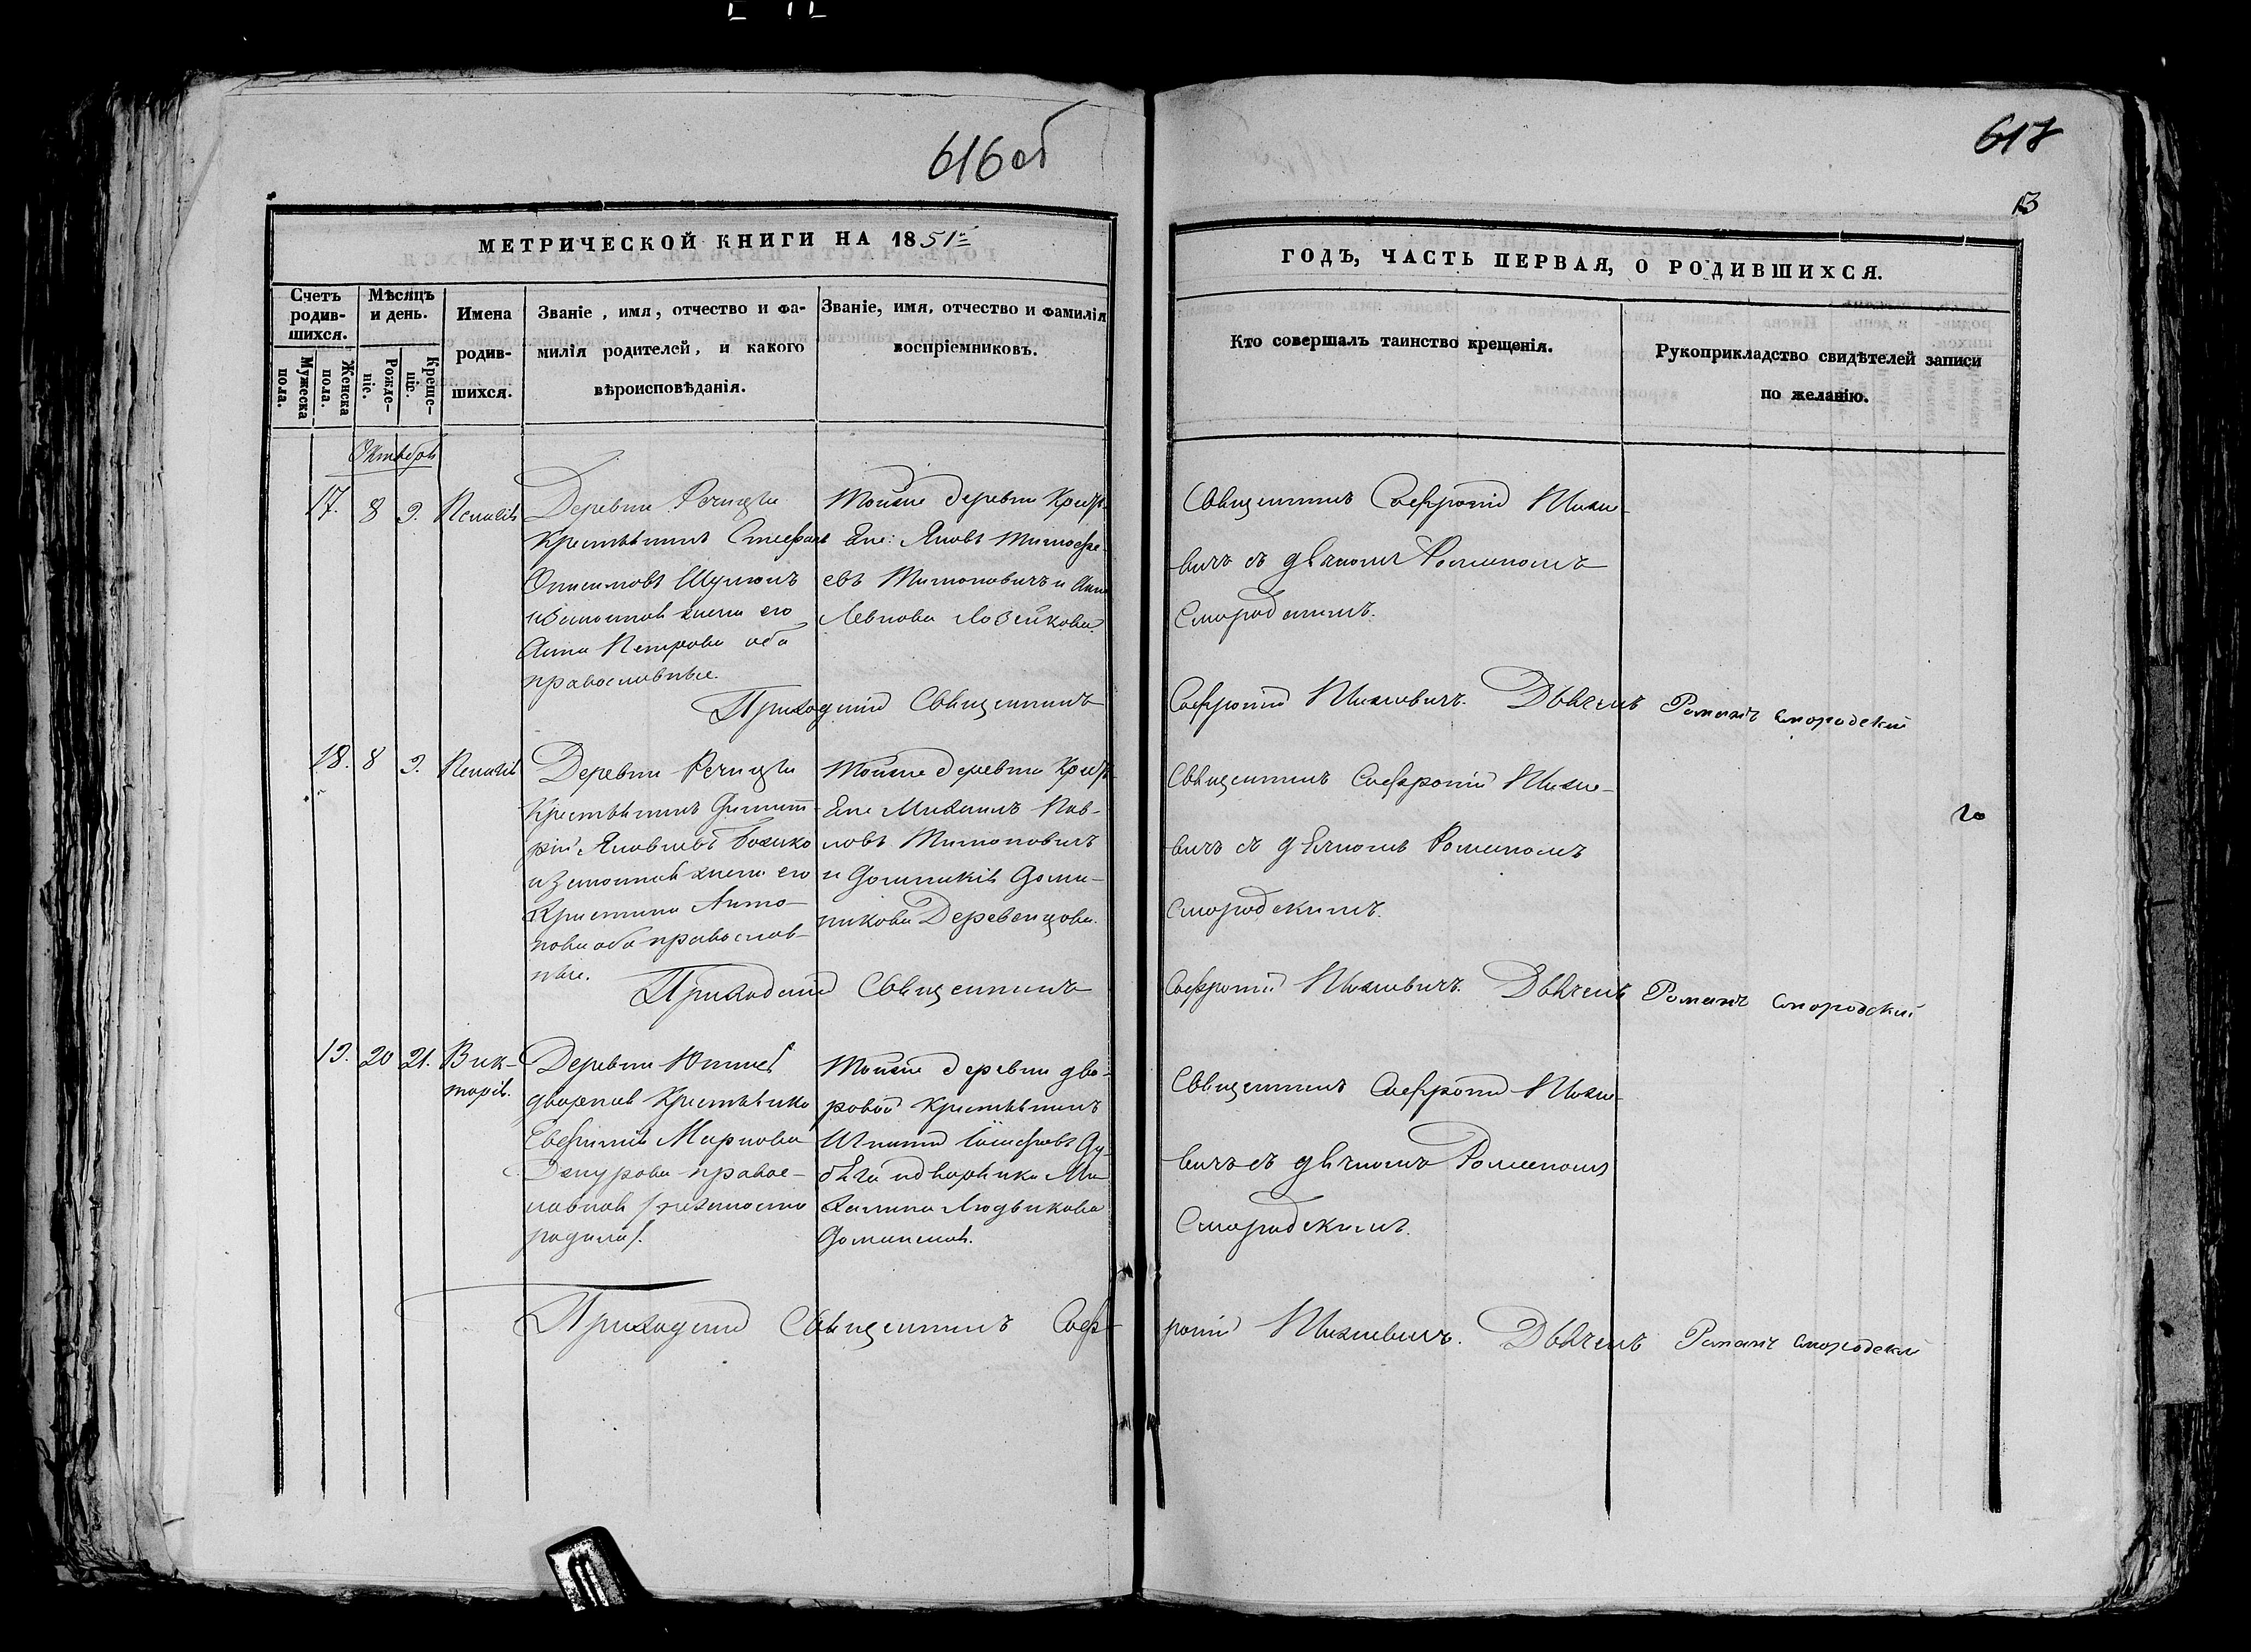 616об
617
13
МЕТРИЧЕСКОЙ КНИГИ НА 1851й
Счетъ родив-шихся.
Мужеска пола.
Женска пола.
Мѣсяцъ и день.
Рожде-ніе.
Креще-ніе.
Имена родив-шихся.
Званіе, имя, отчество и фа-
милія родителей, и какого
вѣроисповѣданія.
Званіе, имя, отчество и фамилія
воспріемниковъ.
Октябрь
17. 8 9. Пелагія
Деревни Речицы
Крестьянинъ Стефанъ
Онисимовъ
и законная жена его
Анна Петрова оба
православные.
Тойже деревни Крест-
яне: Яковъ Тимофе-
евъ Тимоновичъ и Анна
Левкова Лозейкова.
Приходскій Священникъ
18. 8 9. Пелагія
Деревни Речицы
Крестьянинъ Димит-
рій Яковлевъ Бохико
и законная жена его
Кристина Анто-
нова оба православ-
ные.
Тойже деревни Крест-
яне Михаилъ Пав-
ловъ Тимоновичъ
и Доминикія Доми-
никова Деревенцова.
Приходскій Священникъ
19. 20 21. Вик-
торія.
Деревни
дворная Крестьянка
Евфимія Маркова
правос-
лавная (незаконно
родила).
Тойже деревни дво-
ровой Крестьянинъ
Игнатій Іосифовъ
и дворянка Ми-
халина Людвикова
Приходскій Священникъ Соф-
ГОДЪ, ЧАСТЬ ПЕРВАЯ, О РОДИВШИХСЯ.
Кто совершалъ таинство крещенія.
Рукоприкладство свидѣтелей записи
по желанію.
Священникъ Софроній Михне-
вичъ съ дьячкомъ Романомъ
Смородскимъ.
Софроній Михневичъ. Дьячекъ Романъ Смородский
Священникъ Софроній Михне-
вичъ съ дьячкомъ Романомъ
Смородскимъ.
Софроній Михневичъ. Дьячекъ Романъ Смородский
Священникъ Софроній Михне-
вичъ съ дьячкомъ Романомъ
Смородскимъ.
роній Михневичъ. Дьячекъ Романъ Смородский